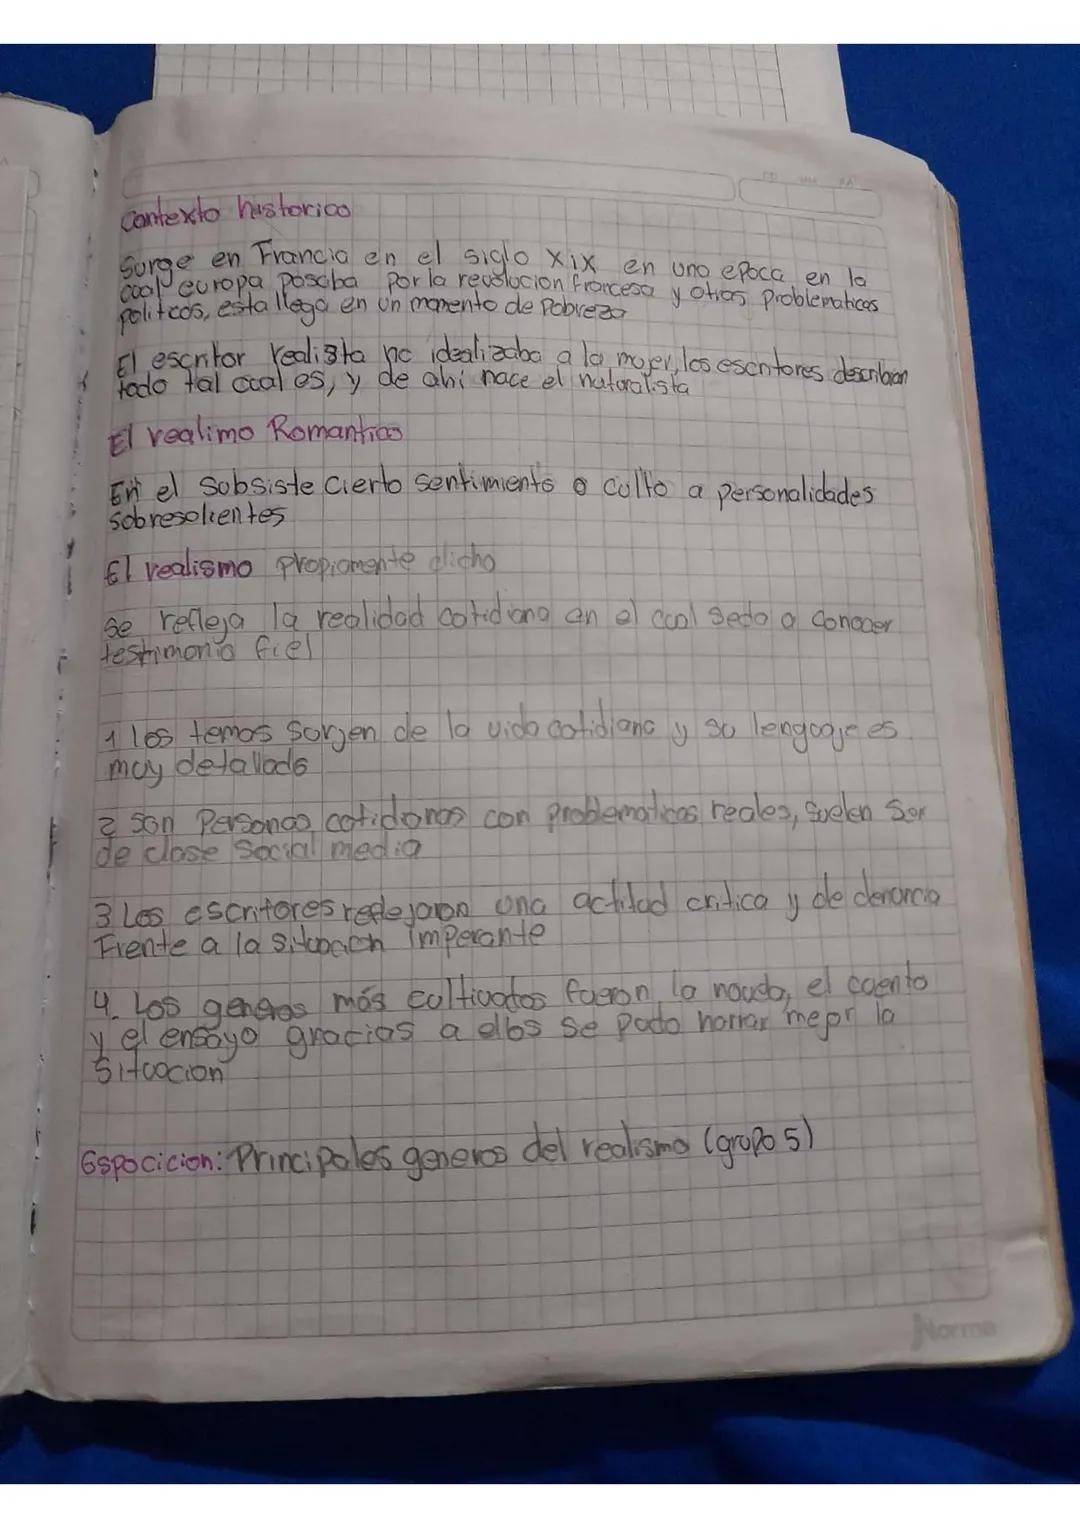 Contexto historico
Surge en Francia en el siglo XIX en una epoca en la
cual europa pasaba por la revolucion francesa y otras problematicas
politicas, esta llega en un momento de Pobreza
El escritor realista no idealizaba a la mujer, los escritores describian
todo tal cual es, y de ahí nace el naturalista
El realimo Romantico
En el subsiste cierto sentimiento o culto a personalidades
sobresalientes
El realismo propiamente dicho
se refleja la realidad cotidiana en el cual se da a conocer
testimonio fiel
1 los temas surjen de la vida cotidiana y su lenguaje es
muy detallado
2 son Personas cotidianas con problematicas reales, suelen ser
de clase social media
3 Los escritores reflejaron una actitud critica y de denuncia
Frente a la situacion imperante
4. Los generos más cultivados fueron la novela, el cuento
y el ensayo gracias a ellos se pudo narrar mejor la
situacion
Espocicion: Principales generos del realismo (grupo 5)
Norma